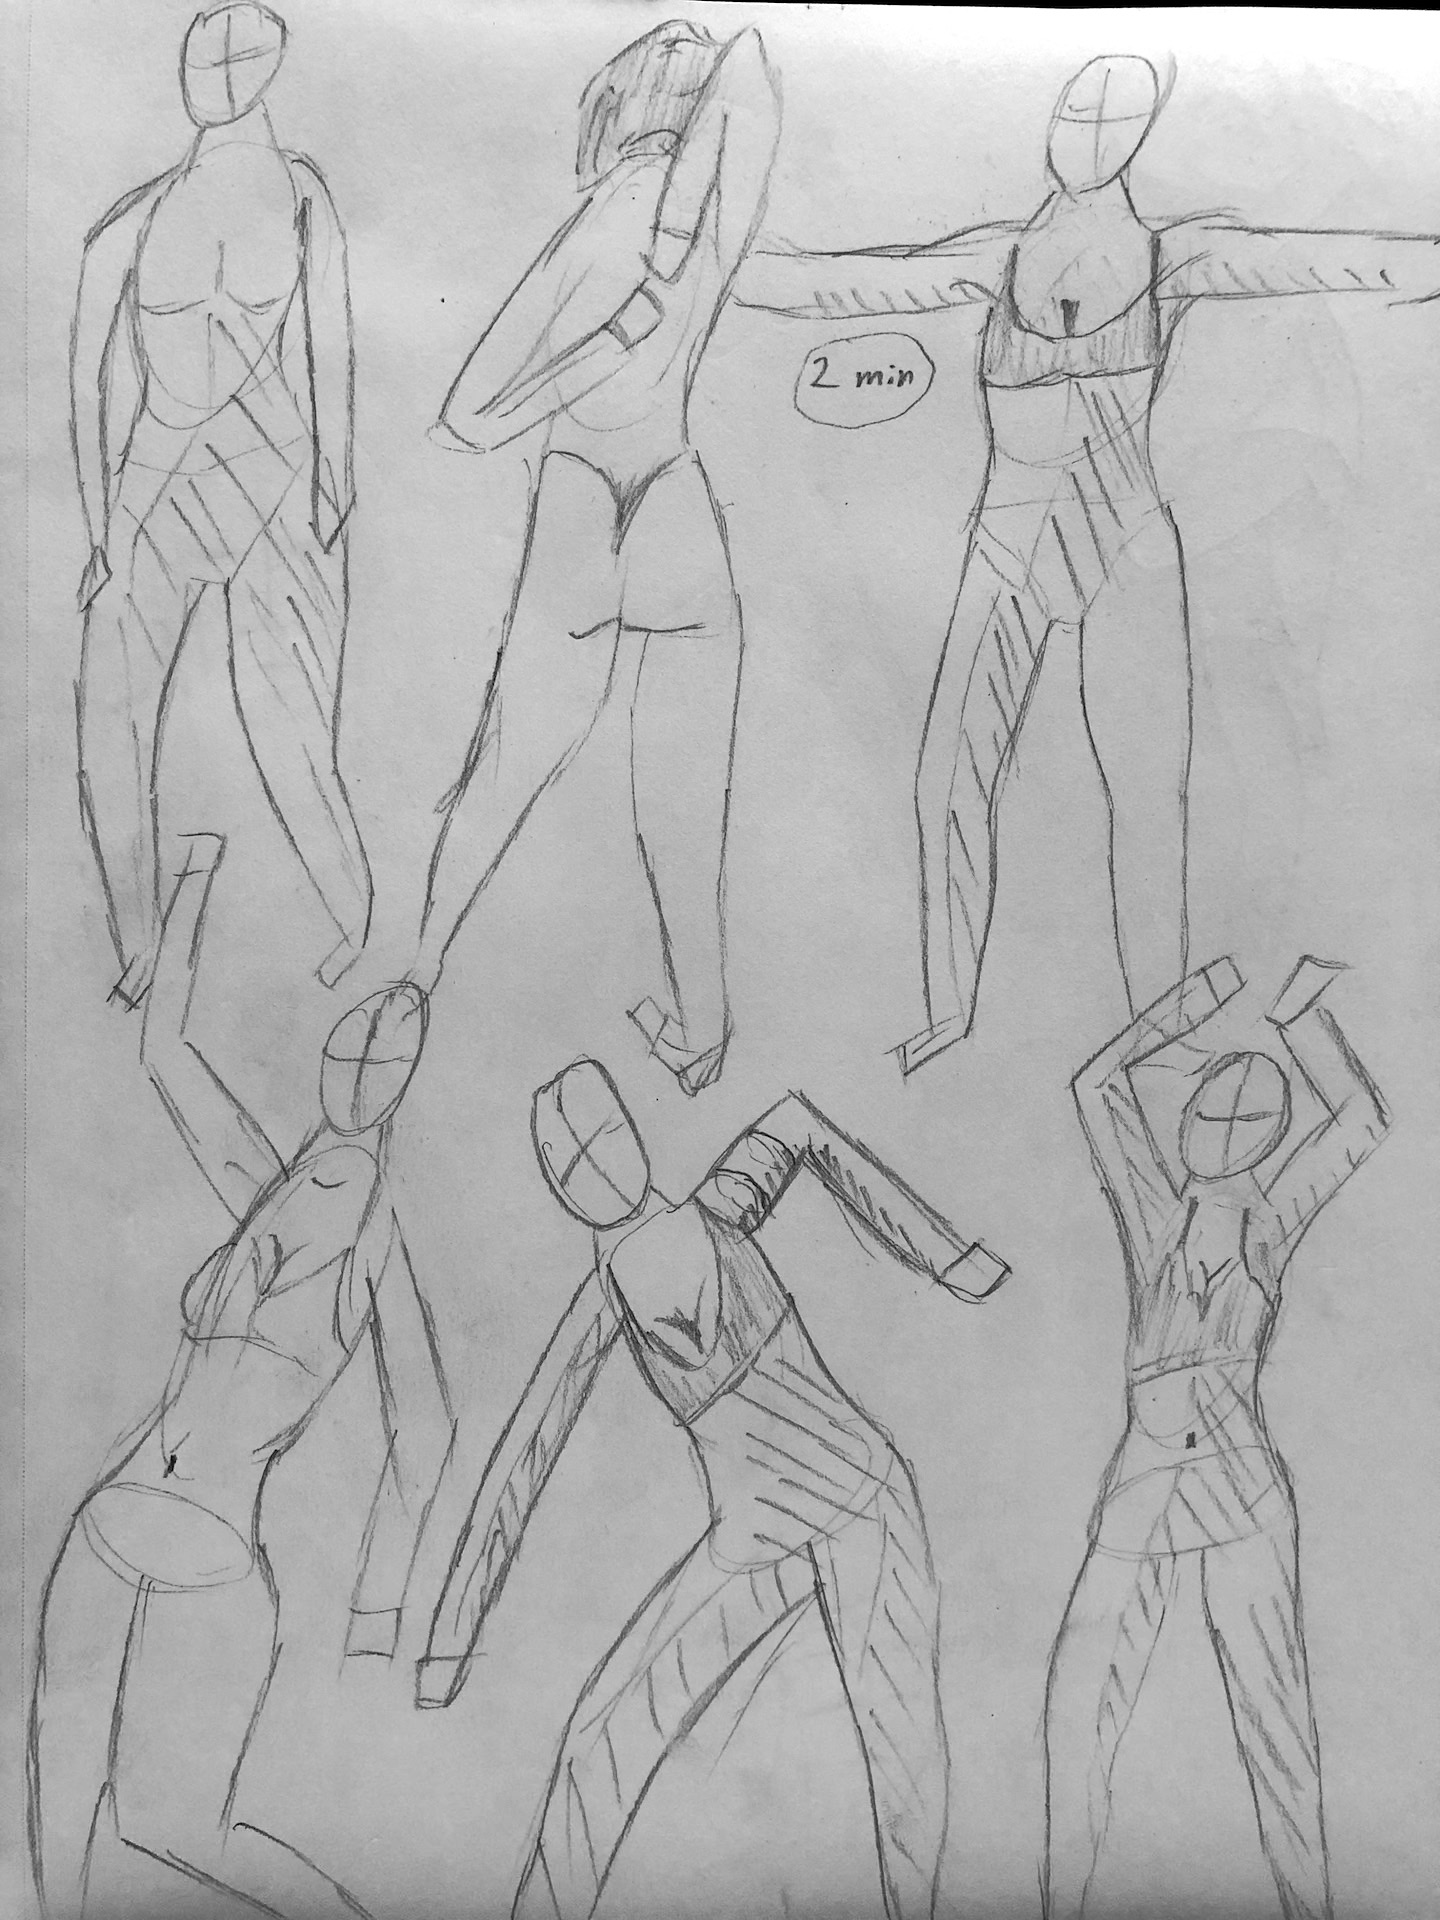 2 min